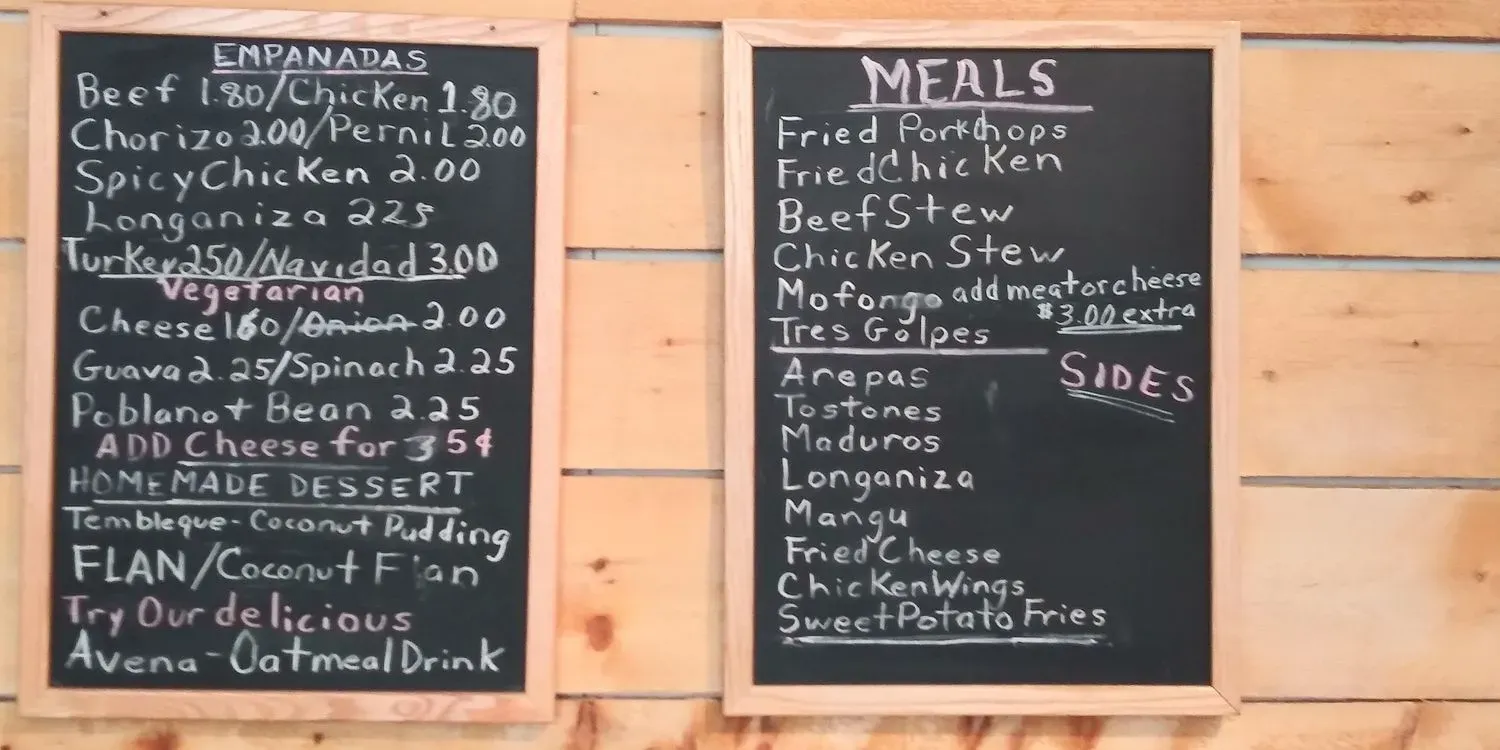 EMPANADAS
Beef 1.80/Chicken 1.80
Chorizo 2.00/Pernil 2.00
Spicy Chicken 2.00
Longaniza 225
Turkey 250/Navidad 3.00
Vegetarian
Cheese 160/Onion 2.00
Guava 2.25/Spinach 2.25
Poblano + Bean 2.25
ADD Cheese for 35¢
HOMEMADE DESSERT
Tembleque - Coconut Pudding
FLAN/Coconut Flan
Try Our delicious
Avena - Oatmeal Drink
MEALS
Fried Porkchops
Fried Chicken
Beef Stew
Chicken Stew
Mofongo add meat or cheese
$3.00 extra
Tres Golpes
SIDES
Arepas
Tostones
Maduros
Longaniza
Mangu
Fried Cheese
Chicken Wings
Sweet Potato Fries